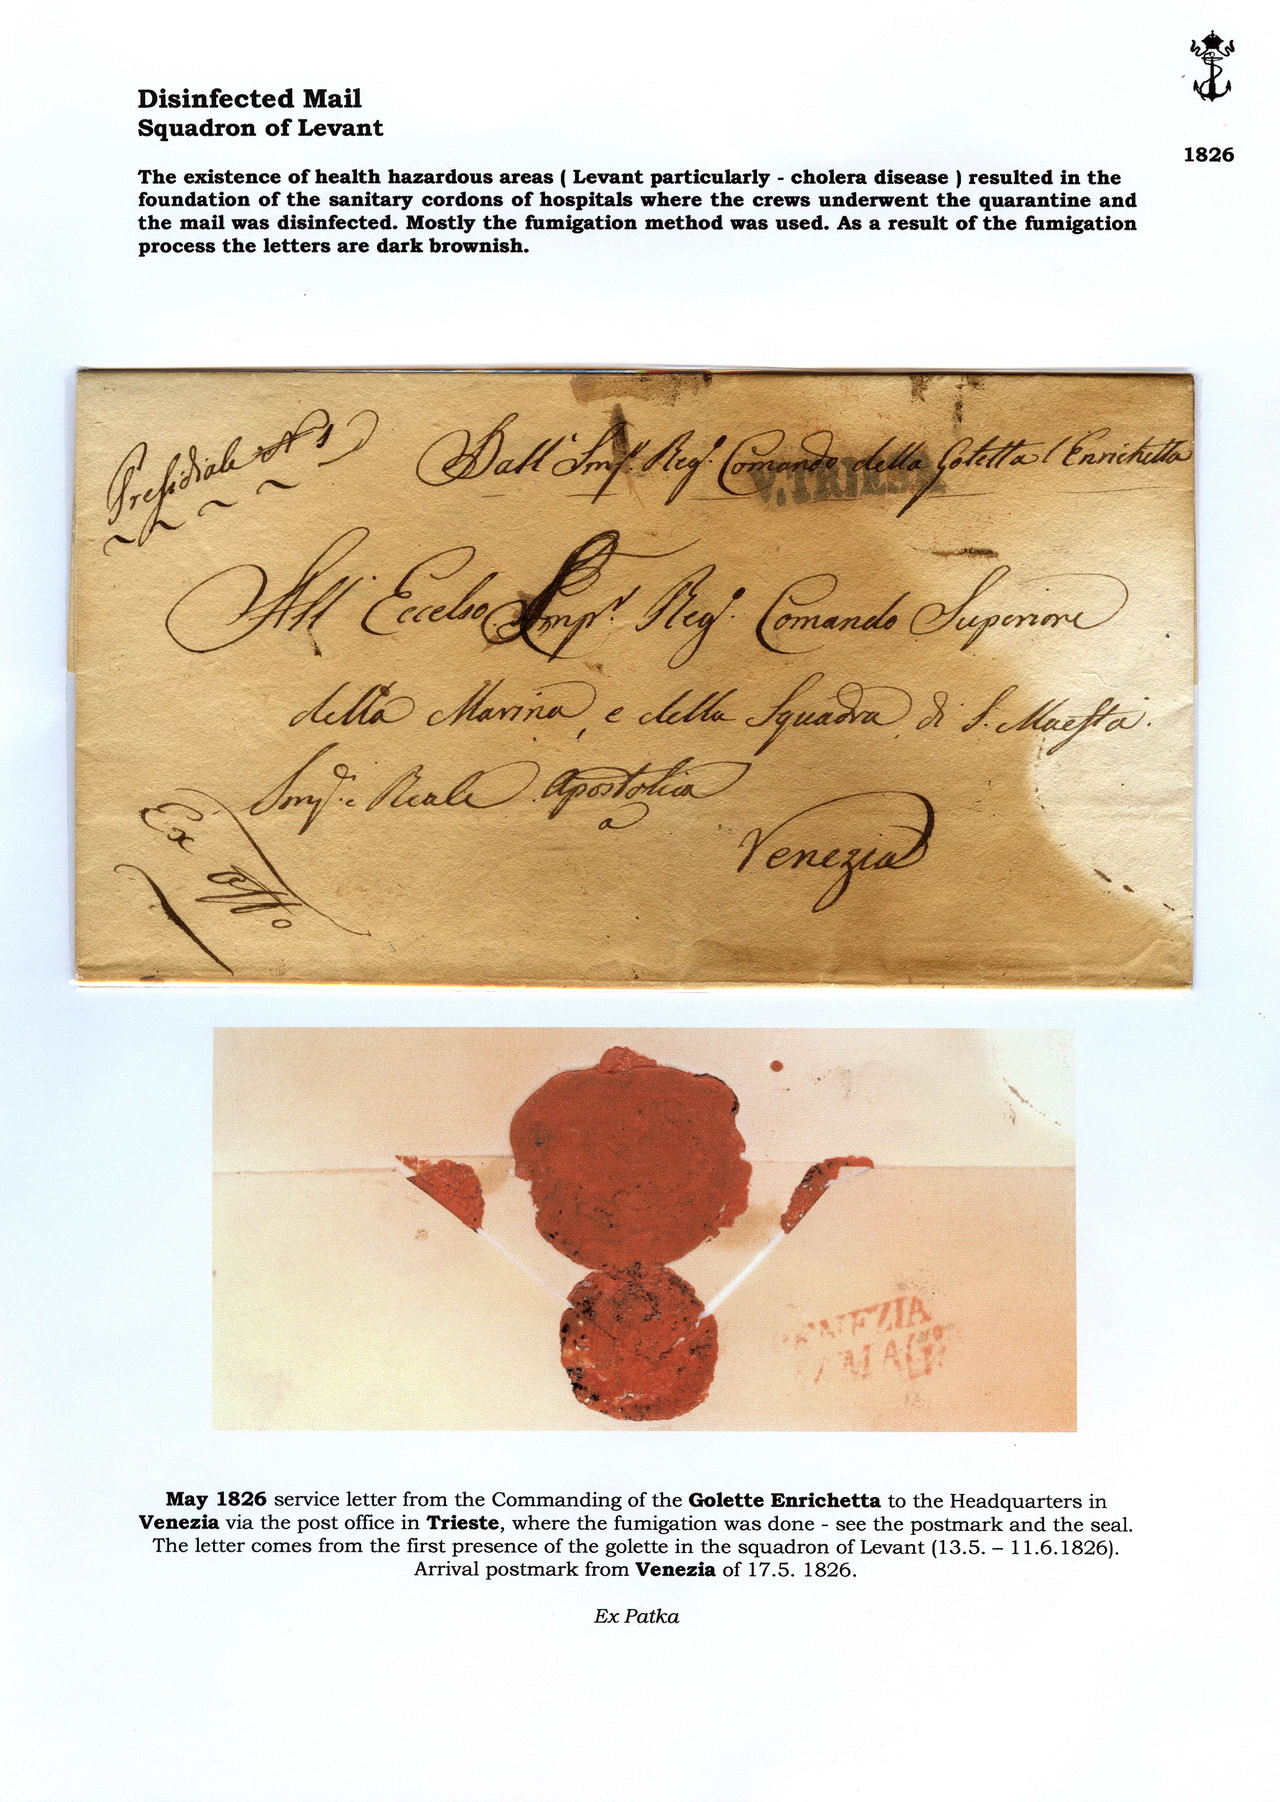 Disinfected Mail
Squadron of Levant
1826
The existence of health hazardous areas ( Levant particularly - cholera disease ) resulted in the
foundation of the sanitary cordons of hospitals where the crews underwent the quarantine and
the mail was disinfected. Mostly the fumigation method was used. As a result of the fumigation
process the letters are dark brownish.
Presidiale N° 1
Dall' Imp. Reg. Comando della Goletta l'Enrichetta
V. TRIEST
All' Eccelso Imp. Reg. Comando Superiore
della Marina, e della Squadra di S. Maestà
Reale Apostolica
a
Venezia
Ex offo
VENEZIA
MAG
May 1826 service letter from the Commanding of the Golette Enrichetta to the Headquarters in
Venezia via the post office in Trieste, where the fumigation was done - see the postmark and the seal.
The letter comes from the first presence of the golette in the squadron of Levant (13.5. – 11.6.1826).
Arrival postmark from Venezia of 17.5. 1826.
Ex Patka